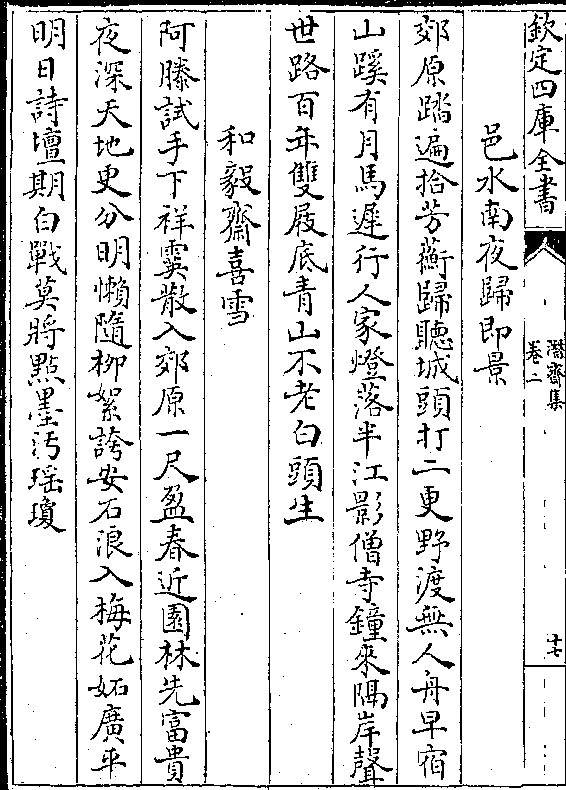 欽定四庫全書
潛齋集
卷二
十七
邑水南夜歸即景
郊原踏遍拾芳蘅歸聽城頭打二更野渡無人舟早宿
山蹊有月馬遲行人家燈落半江影僧寺鐘來隔岸聲
世路百年雙屐底青山不老白頭生
和毅齋喜雪
阿滕試手下祥霙散入郊原一尺盈春近園林先富貴
夜深天地更分明懶隨柳絮誇安石浪入梅花妬廣平
明日詩壇期白戰莫將點墨汚瑶瓊